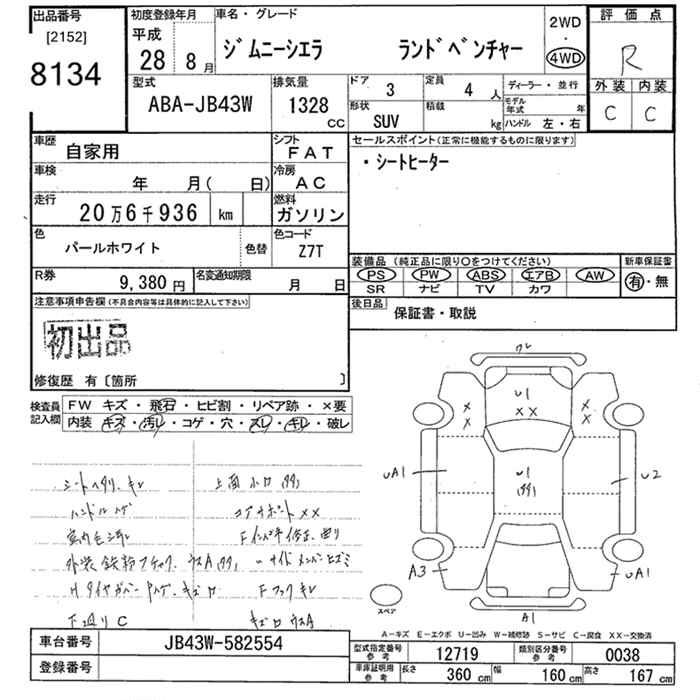 出品番号 初度登録年月 車名・グレード 2WD 評価点
[2152] 平成
8134 28年 8月 ジムニーシエラ ランドベンチャー 4WD R
型式 排気量 ドア 3 定員 4人 ディーラー・並行 外装 内装
ABA-JB43W 1328 CC 形状 SUV 積載 kg モデル年式 年 C C
ハンドル 左・右
車歴 自家用 シフト FAT セールスポイント(正常に機能するものに限ります)
車検 年 月( 日) 冷房 AC ・シートヒーター
走行 20万6千936 km 燃料 ガソリン
色 パールホワイト 色替 色コード Z7T
装備品 (純正品に限り○をつけてください) 新車保証書
R券 9,380円 名変通知期限 月 日 PS PW ABS エアB AW 有・無
SR ナビ TV カワ
注意事項申告欄(不具合内容等は具体的に記入して下さい) 後日品 保証書・取説
初出品
修復歴 有〔箇所 〕
検査員記入欄 FW キズ・飛石・ヒビ割・リペア跡・×要
内装 キズ・汚レ・コゲ・穴・スレ・キレ・破レ
シートヘタリ、キレ
ハンドル
コアサポートXX
外装鉄粉
下廻りC
U1
XX
UA1 U1 U2
A3 UA1
スペア A1
A－キズ E－エクボ U－凹み W－補修跡 S－サビ C－腐食 XX－交換済
車台番号 JB43W-582554 型式指定番号 参考 12719 類別区分番号 参考 0038
登録番号 車庫証明用 参考 長さ 360cm 幅 160cm 高さ 167cm